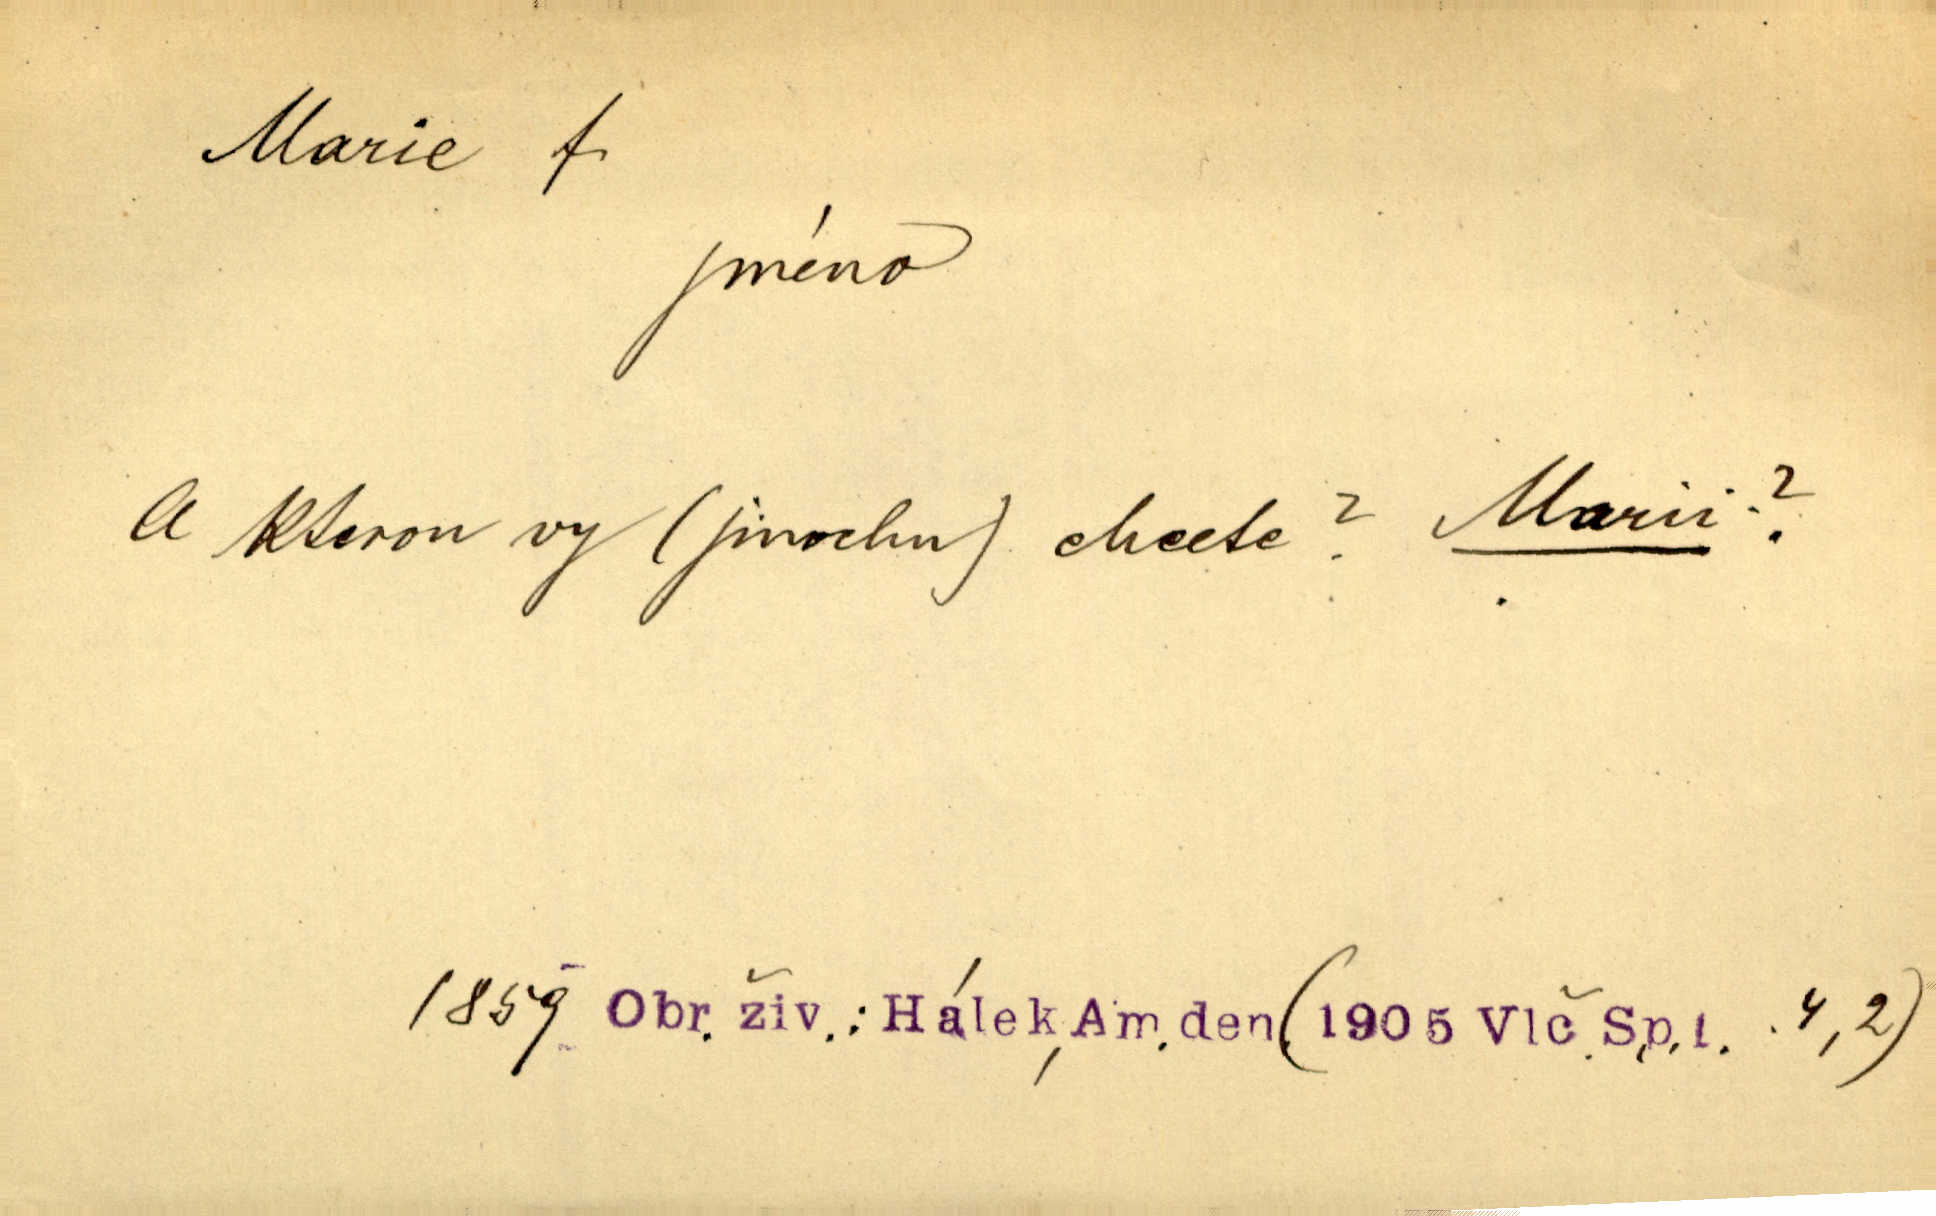 Marie f
jméno
A kterou vy (jinochu) chcete? Marii?
1859 Obr. živ.: Hálek, Am. den. (1905 Vlč. Sp. 1. 4, 2)